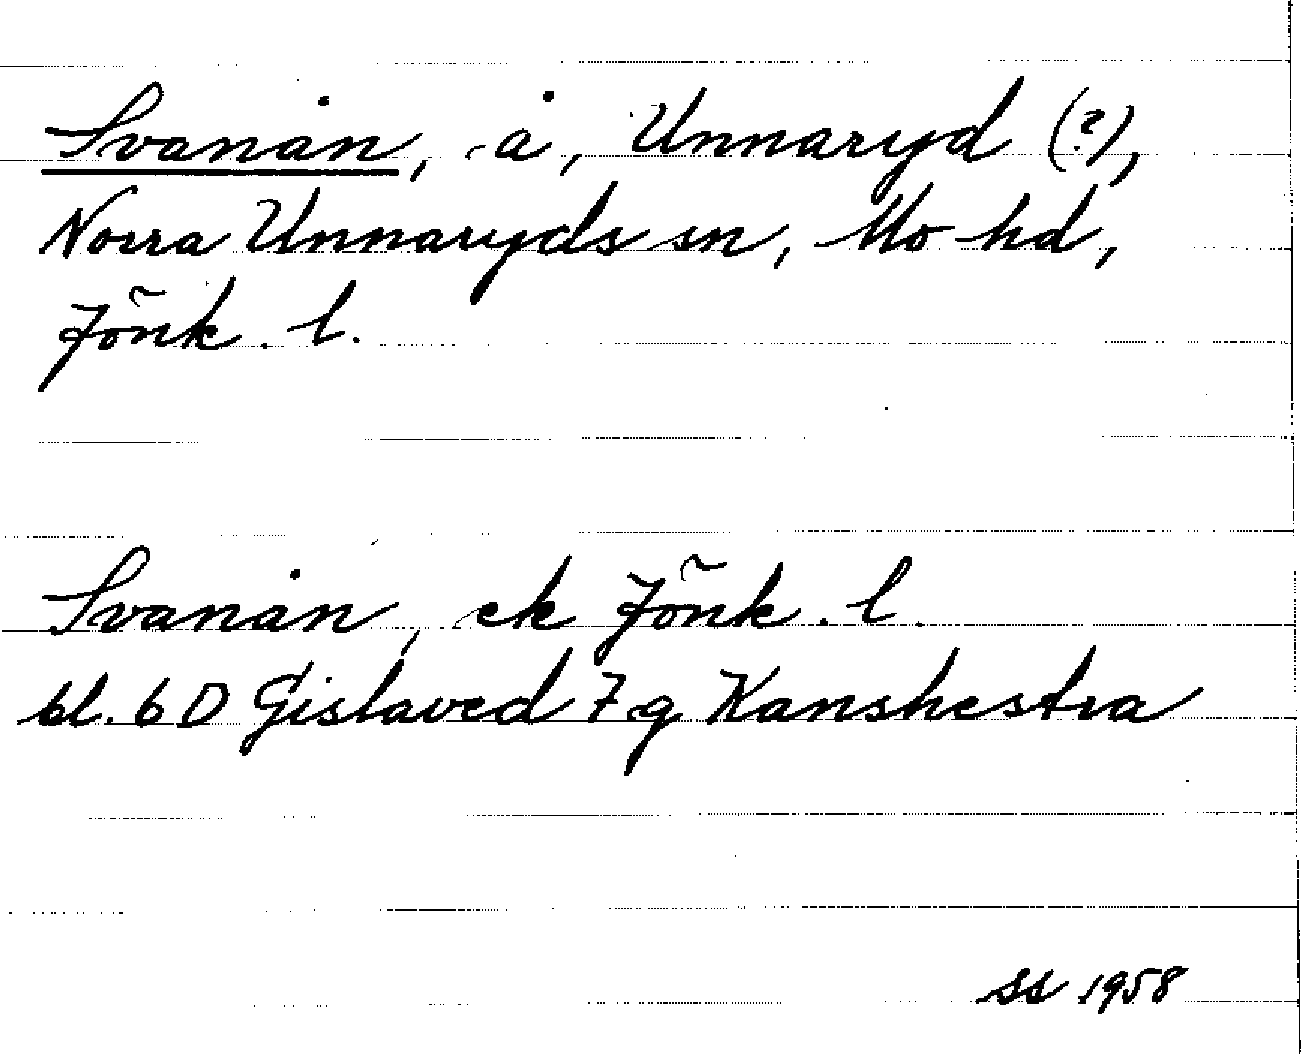 Svanån, å, Unnaryd (?),
Norra Unnaryds sn, Mo hd,
Jönk. l.
Svanån, ek Jönk. l.
bl. 6 D Gislaved 7 g Kanshestra
SS 1958